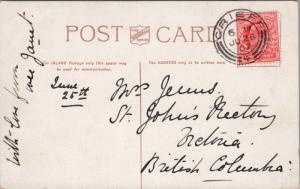 POST CARD
FOR INLAND Postage only this space may be used for communication.
The ADDRESS only to be written here.
With love from
wee Janet.
June
25th
Mrs Jenns.
St. John's Rectory
Victoria.
British Columbia.
CRIEFF